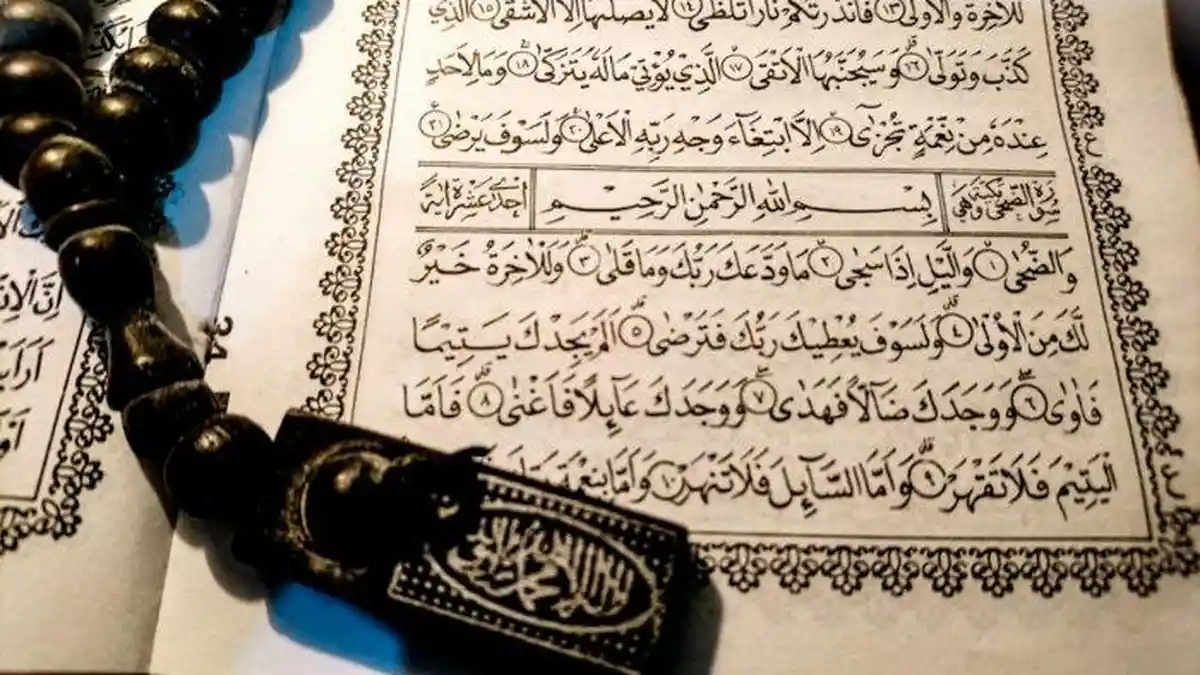 لَلْاٰخِرَةَ وَالْاُوْلٰى ۝۱۳ فَاَنْذَرْتُكُمْ نَارًا تَلَظّٰى ۝۱۴ لَا يَصْلٰىهَاۤ اِلَّا الْاَشْقَى ۝۱۵ الَّذِيْ
كَذَّبَ وَتَوَلّٰى ۝۱۶ وَسَيُجَنَّبُهَا الْاَتْقَى ۝۱۷ الَّذِيْ يُؤْتِيْ مَالَهٗ يَتَزَكّٰى ۝۱۸ وَمَا لِاَحَدٍ
عِنْدَهٗ مِنْ نِّعْمَةٍ تُجْزٰٓى ۝۱۹ اِلَّا ابْتِغَآءَ وَجْهِ رَبِّهِ الْاَعْلٰى ۝۲۰ وَلَسَوْفَ يَرْضٰى ۝۲۱
سُوْرَةُ الضُّحٰى مَكِّيَّةٌ وَّهِيَ بِسْمِ اللهِ الرَّحْمٰنِ الرَّحِيْمِ اِحْدٰى عَشْرَةَ اٰيَةً
وَالضُّحٰى ۝۱ وَالَّيْلِ اِذَا سَجٰى ۝۲ مَا وَدَّعَكَ رَبُّكَ وَمَا قَلٰى ۝۳ وَلَلْاٰخِرَةُ خَيْرٌ
لَّكَ مِنَ الْاُوْلٰى ۝۴ وَلَسَوْفَ يُعْطِيْكَ رَبُّكَ فَتَرْضٰى ۝۵ اَلَمْ يَجِدْكَ يَتِيْمًا
فَاٰوٰى ۝۶ وَوَجَدَكَ ضَآلًّا فَهَدٰى ۝۷ وَوَجَدَكَ عَآئِلًا فَاَغْنٰى ۝۸ فَاَمَّا
الْيَتِيْمَ فَلَا تَقْهَرْ ۝۹ وَاَمَّا السَّآئِلَ فَلَا تَنْهَرْ ۝۱۰ وَاَمَّا بِنِعْمَةِ
اِنَّ الْاِنْ